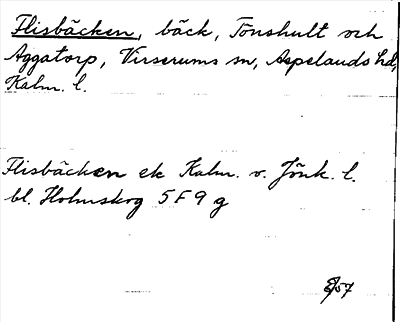 Flisbäcken, bäck, Tönshult och
Aggatorp, Virserums sn, Aspelands hd,
Kalm. l.
Flisbäcken ek Kalm. v. Jönk. l.
bl. Holmskog 5 F 9 g